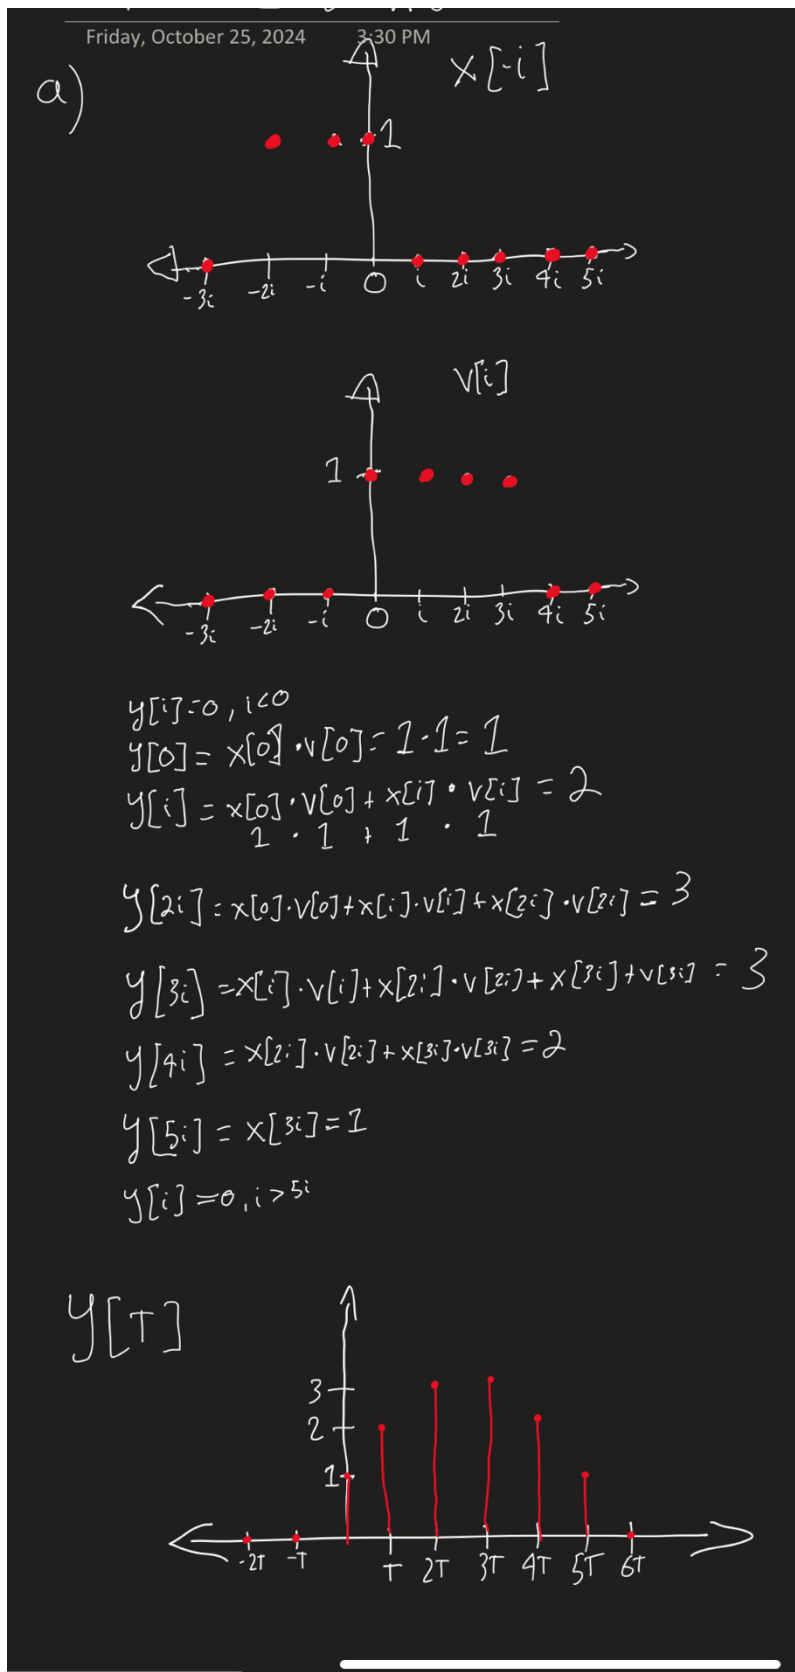 Friday, October 25, 2024 3:30 PM
a) x[-i]
1
-3i -2i -i 0 i 2i 3i 4i 5i
v[i]
1
-3i -2i -i 0 i 2i 3i 4i 5i
y[i]=0, i<0
y[0] = x[0] · v[0] = 1·1 = 1
y[i] = x[0]·v[0] + x[i] · v[i] = 2
1 · 1 + 1 · 1
y[2i] = x[0]·v[0]+x[i]·v[i]+x[2i]·v[2i] = 3
y[3i] = x[i]·v[i]+x[2i]·v[2i]+x[3i]+v[3i] = 3
y[4i] = x[2i]·v[2i]+x[3i]·v[3i] = 2
y[5i] = x[3i]=1
y[i] = 0, i > 5i
y[T]
3
2
1
-2T -T T 2T 3T 4T 5T 6T